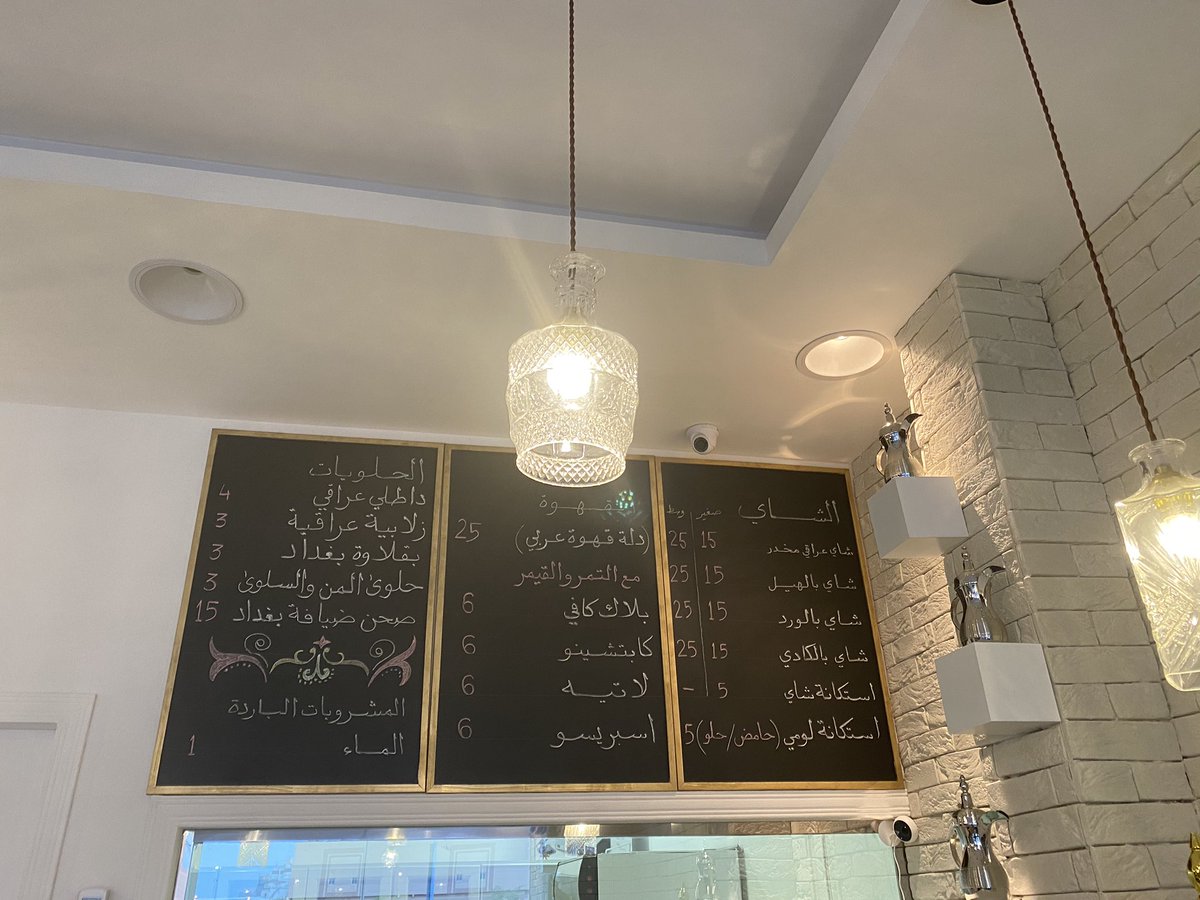 الشاي صغير وسط
شاي عراقي مخدر 15 25
شاي بالهيل 15 25
شاي بالورد 15 25
شاي بالكادي 15 25
استكانة شاي 5 -
استكانة لومي (حامض/حلو) 5
القهوة
(دلة قهوة عربي) 25
مع التمر والقيمر
بلاك كافي 6
كابتشينو 6
لاتيه 6
اسبريسو 6
الحلويات
داطلي عراقي 4
زلابية عراقية 3
بقلاوة بغداد 3
حلوى المن والسلوى 3
صحن ضيافة بغداد 15
المشروبات الباردة
الماء 1